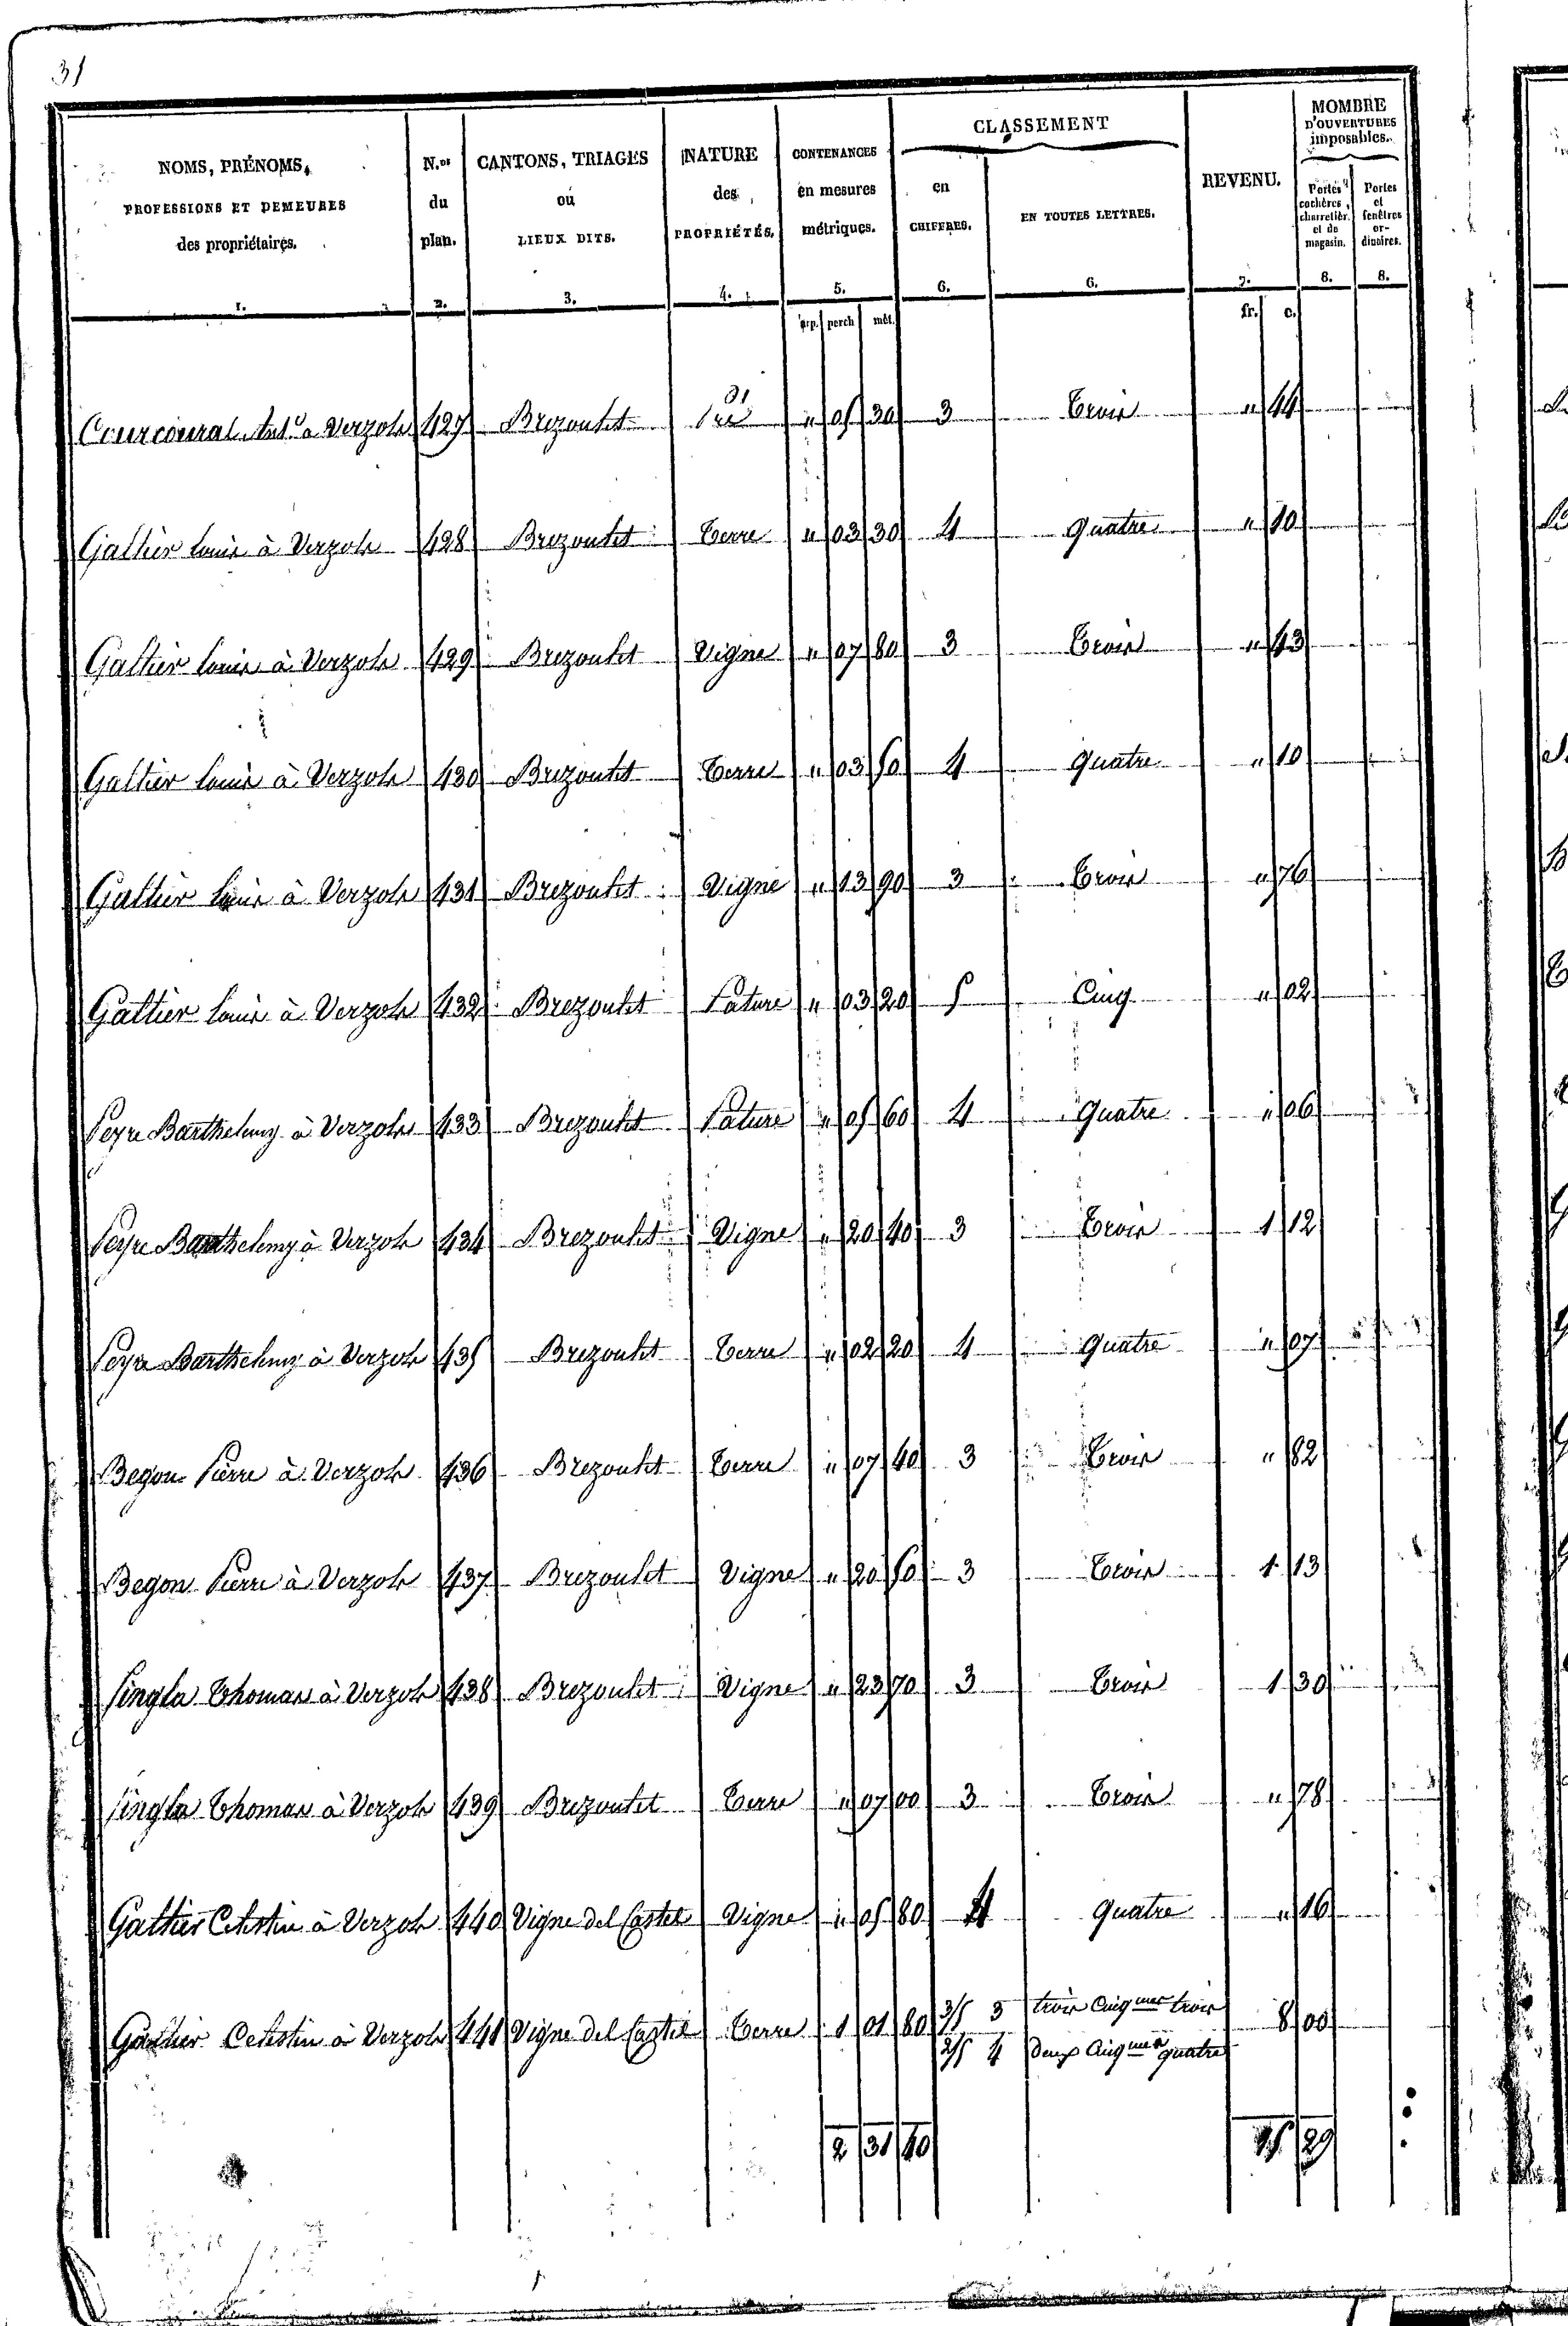 31
NOMS, PRÉNOMS, PROFESSIONS ET DEMEURES des propriétaires. | N.os du plan. | CANTONS, TRIAGES ou LIEUX DITS. | NATURE des PROPRIÉTÉS. | CONTENANCES en mesures métriques. | CLASSEMENT en CHIFFRES. | EN TOUTES LETTRES. | REVENU. | MOMBRE D'OUVERTURES imposables. Portes cochères, charretièr. et de magasin. | Portes et fenêtres or-dinaires.
1. | 2. | 3. | 4. | 5. | 6. | 6. | 7. | 8. | 8.
arp. | perch | mèt. | fr. | c.
Courcoural Ant.e à Verzols 427 Brezoulet Pré " 05 30 3 Trois " 44
Galtier Louis à Verzols 428 Brezoulet Terre " 03 30 4 quatre " 10
Galtier Louis à Verzols 429 Brezoulet Vigne " 07 80 3 Trois " 43
Galtier Louis à Verzols 430 Brezoulet Terre " 03 50 4 quatre " 10
Galtier Louis à Verzols 431 Brezoulet Vigne " 13 90 3 Trois " 76
Galtier Louis à Verzols 432 Brezoulet Pature " 03 20 5 Cinq " 02
Peyre Barthelemy à Verzols 433 Brezoulet Pature " 05 60 4 Quatre " 06
Peyre Barthelemy à Verzols 434 Brezoulet Vigne " 20 40 3 Trois 1 12
Peyre Barthelemy à Verzols 435 Brezoulet Terre " 02 20 4 quatre " 07
Begon Pierre à Verzols 436 Brezoulet Terre " 07 40 3 Trois " 82
Begon Pierre à Verzols 437 Brezoulet Vigne " 20 50 3 Trois 1 13
Singla Thomas à Verzols 438 Brezoulet Vigne " 23 70 3 Trois 1 30
Singla Thomas à Verzols 439 Brezoulet Terre " 07 00 3 Trois " 78
Galtier Celestin à Verzols 440 Vigne del Castel Vigne " 05 80 4 quatre " 16
Galtier Celestin à Verzols 441 Vigne del Castel Terre 1 01 80 3/5 3 trois Cinqmes trois 8 00
2/5 4 deux Cinqmes quatre
2 31 40 15 29